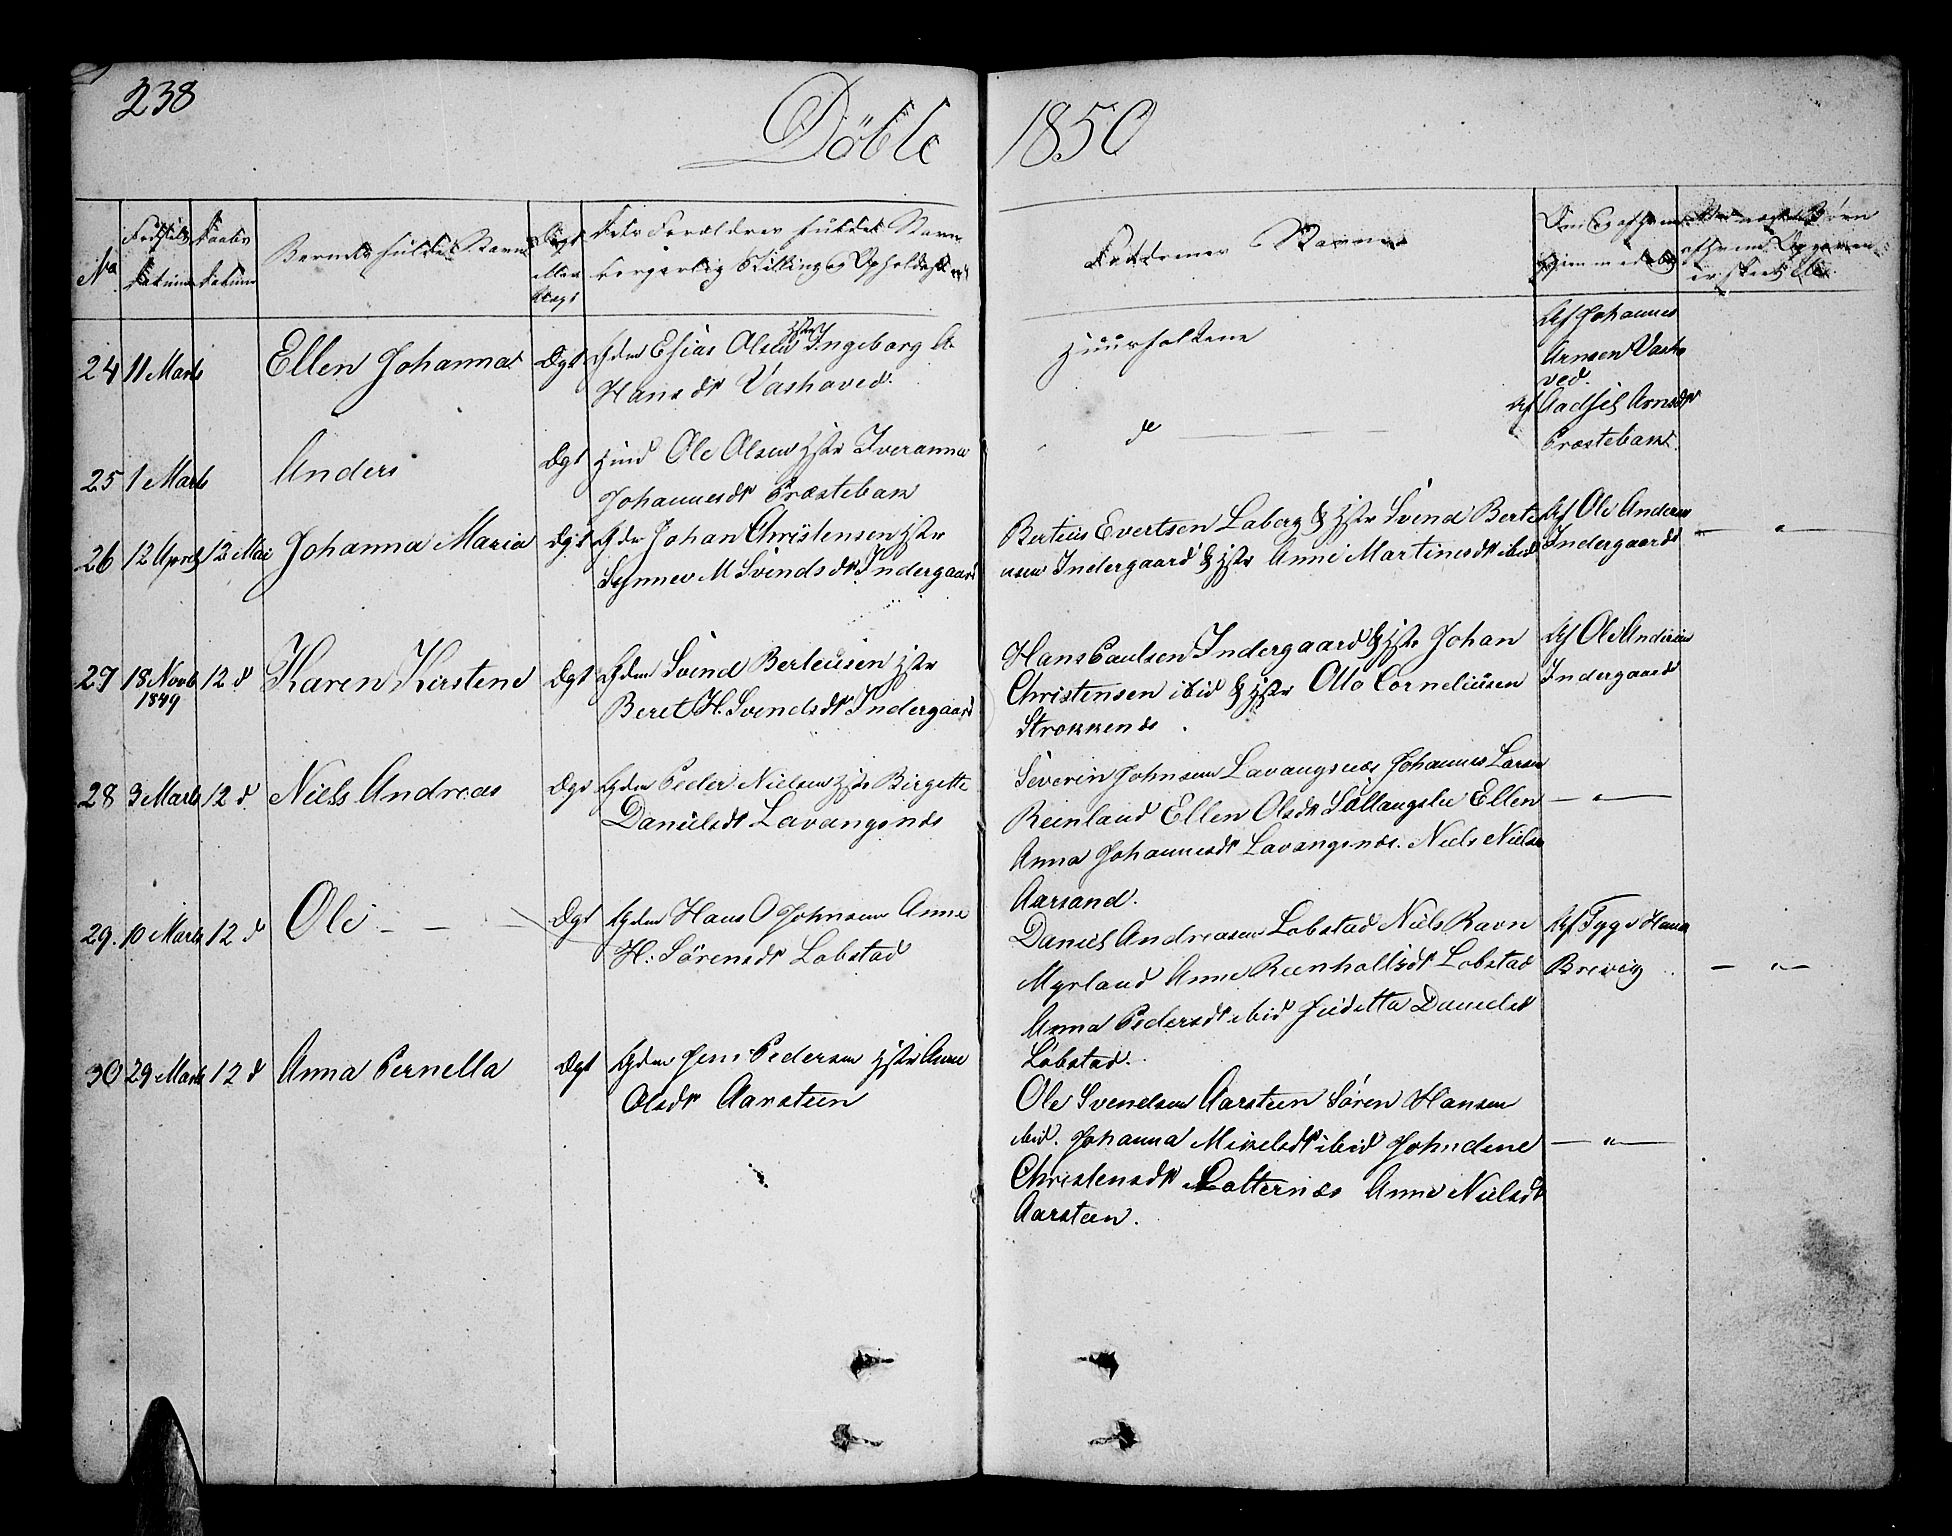 238
Döbte 1850
No
Fødsels Datum
Daabs Datum
Barnets fulde Navn
Ægt eller Uægt
Dets Forældres fulde Navn
borgerlig Stilling og Opholdssted
Faddernes Navne
24 11 Marts Ellen Johanna Ægt Gdm Esias Olsen Hstr Ingeborg A
Hansdt Vashaved
Huusfolkene
Af Johannes
Arnsen Vasha
ved.
25 1 Marts Anders Ægt Hmd Ole Olsen Hstr Iveranna
Johannesdt Præstebak
do
Af Aadsil Arnsdt
Præstebak
26 12 April 12 Mai Johanna Maria Ægt Gdm Johan Christensen Hstr
Synnev M Svendsdt Indergaard
Bertius Evertsen Laberg & Hstr Svend Berte
usen Indergaard & Hstr Anne Martinesdt ibid
Af Ole Anders
Indergaard
— " —
27 18 Novb 1849 12 d Karen Kirstene Ægt Gdm Svend Berteusen Hstr
Beret H. Svendsdt Indergaard
Hans Paulsen Indergaard & Hstr Johan
Christensen ibid & Hstr Otto Corneliusen
Strokkenæs.
Af Ole Anders
Indergaard
28 3 Marts 12 d Niels Andreas Ægt Gdm Peder Nielsen Hstr Birgitte
Danielsdt Lavangsnæs
Severin Johnsen Lavangsnæs Johannes Larsen
Reinland Ellen Olsdt Sallangslie Ellen
Anna Johannesdt Lavangsnæs. Niels Nielsen
Aarsand.
— " —
29. 10 Marts 12 d Ole — — Ægt Gdm Hans O Johnsen Anne
H: Sörensdt Lobstad
Daniel Andreasen Lobstad Niels Ravn
Myrland Anne Reinholtsdt Lobstad
Anna Pedersdt ibid Judetta Danielsdt
Lobstad.
Af Tyge Hans
Brevig
— " —
30 29 Marts 12 d Anna Pernella Ægt Gdm Jens Pedersen Hstr Anne
Olsdt Aarsteen
Ole Svendsen Aarsteen Sören Hansen
ibid. Johanna Mikelsdt ibid Johndine
Christensdt Laternæs Anne Nielsdt
Aarsteen.
— " —